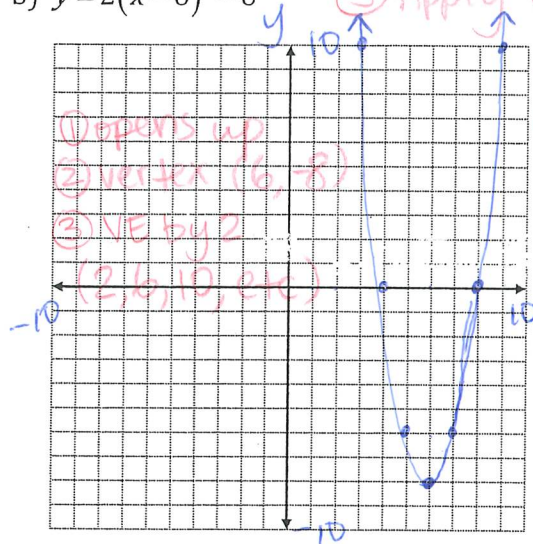 y = 2(x - 6) - 8
③ Apply
y
10
① opens up
② vertex (6, -8)
③ VE by 2
(2, 6, 10, etc)
-10
10
-10